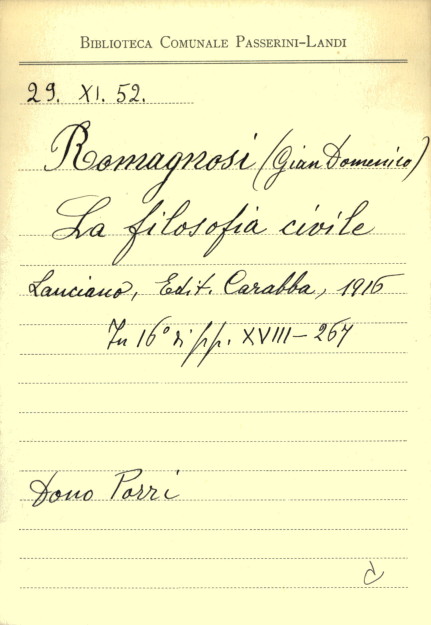 BIBLIOTECA COMUNALE PASSERINI-LANDI
29. XI. 52.
Romagnosi (Gian Domenico)
La filosofia civile
Lanciano, Edit. Carabba, 1916
In 16° di pp. XVIII - 267
Dono Porri